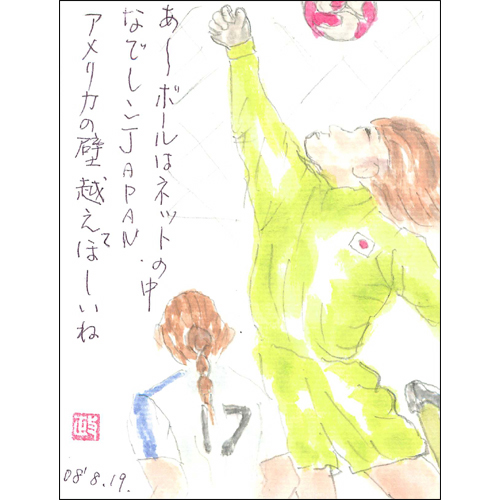 あ〜ボールはネットの中
なでしこJAPAN.
アメリカの壁越えてほーいね
17
08' 8.19.